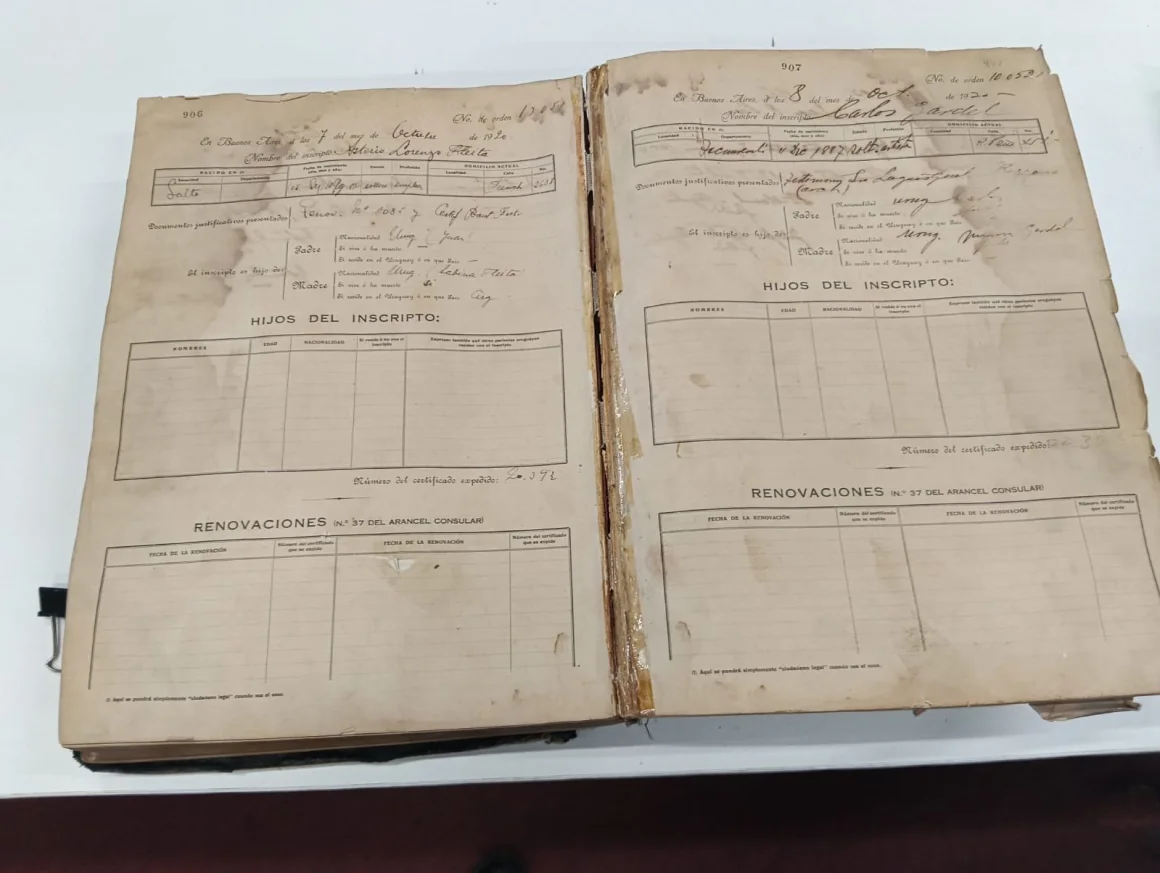 906
No. de orden
En Buenos Aires á los 7 del mes de Octubre de 1920
Nombre del inscripto Lorenzo Fleita
NACIDO EN (1) Fecha de nacimiento (día, mes y año) Estado Profesión DOMICILIO ACTUAL
Localidad Departamento Localidad Calle No.
Salto soltero French
Documentos justificativos presentados Nº 108
El inscripto es hijo de:
Padre
Nacionalidad Urug. Juan
Si vive ó ha muerto
Si reside en el Uruguay ó en que País —
Madre
Nacionalidad Urug. Sabina Fleita
Si vive ó ha muerto si
Si reside en el Uruguay ó en que País Arg.
HIJOS DEL INSCRIPTO:
NOMBRES EDAD NACIONALIDAD Si reside ó no con el inscripto Expresar también qué otros parientes uruguayos residen con el inscripto
Número del certificado expedido: 20.392
RENOVACIONES (N.º 37 DEL ARANCEL CONSULAR)
FECHA DE LA RENOVACIÓN Número del certificado que se expide FECHA DE LA RENOVACIÓN Número del certificado que se expide
(1) Aquí se pondrá simplemente "ciudadano legal" cuando sea el caso.
907
No. de orden 10.052
En Buenos Aires á los 8 del mes de Oct. de 1920
Nombre del inscripto Carlos Gardel
NACIDO EN (1) Fecha de nacimiento (día, mes y año) Estado Profesión DOMICILIO ACTUAL
Localidad Departamento Localidad Calle No.
Tacuarembó 11 Dic 1887 solt. artista
Documentos justificativos presentados
El inscripto es hijo de:
Padre
Nacionalidad urug. Carlos
Si vive ó ha muerto
Si reside en el Uruguay ó en que País
Madre
Nacionalidad urug. Gardel
Si vive ó ha muerto
Si reside en el Uruguay ó en que País
HIJOS DEL INSCRIPTO:
NOMBRES EDAD NACIONALIDAD Si reside ó no con el inscripto Expresar también qué otros parientes uruguayos residen con el inscripto
Número del certificado expedido:
RENOVACIONES (N.º 37 DEL ARANCEL CONSULAR)
FECHA DE LA RENOVACIÓN Número del certificado que se expide FECHA DE LA RENOVACIÓN Número del certificado que se expide
(1) Aquí se pondrá simplemente "ciudadano legal" cuando sea el caso.